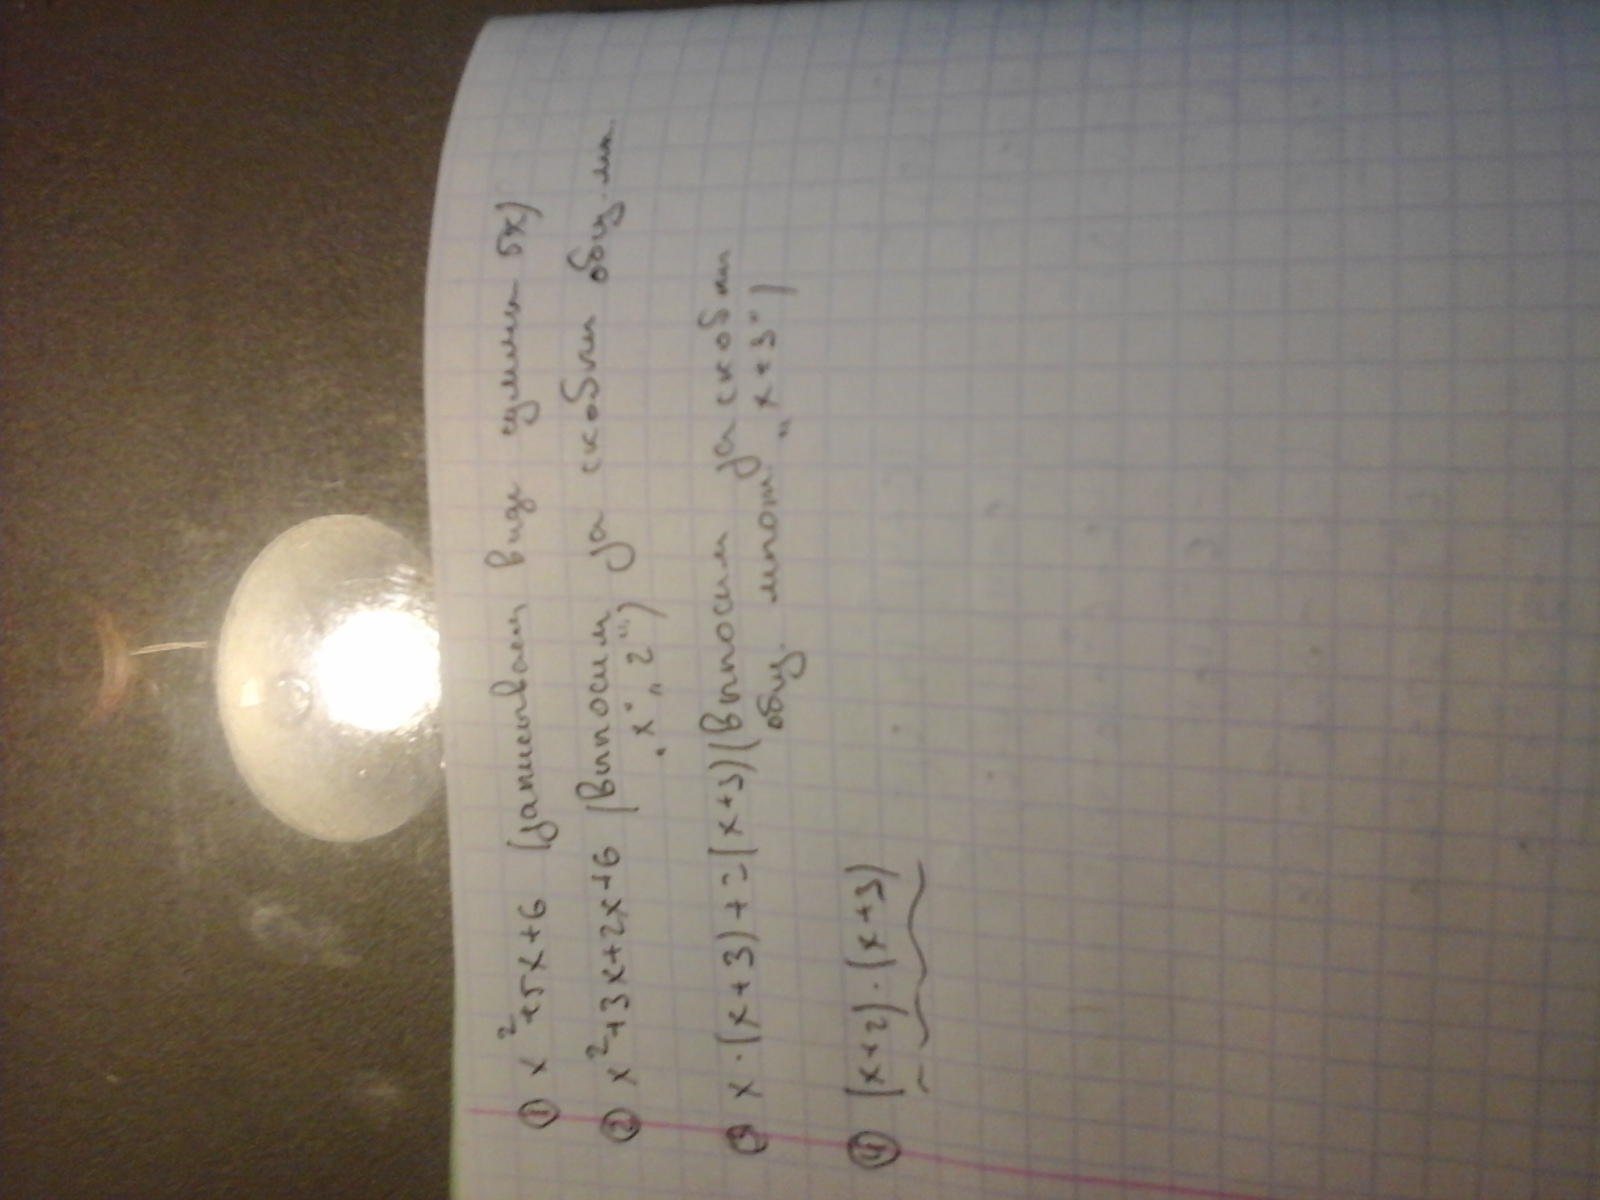 ① x²+5x+6 (записываем в виде суммы 5x)
② x²+3x+2x+6 (выносим за скобки общ. мн.
"x", "2")
③ x·(x+3)+2(x+3)(выносим за скобки
общ. множ. "x+3")
④ (x+2)·(x+3)